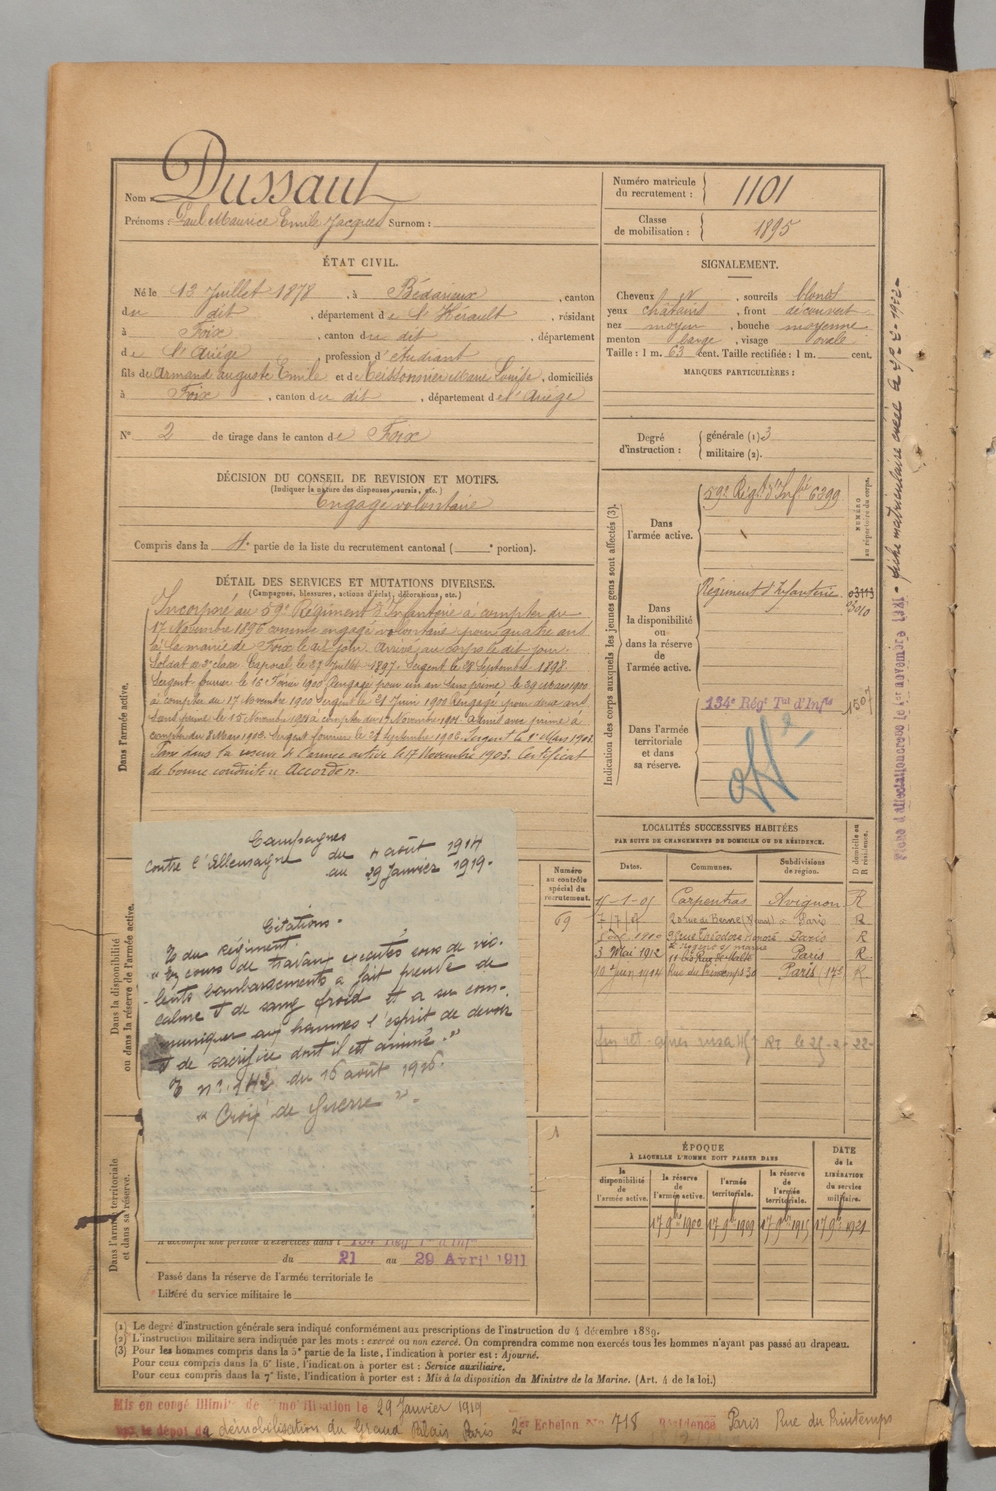 Nom : Dussaut
Prénoms : Paul Maurice Emile Jacques Surnom :
Numéro matricule du recrutement : 1101
Classe de mobilisation : 1895
ÉTAT CIVIL.
Né le 13 Juillet 1878, à Bédarieux, canton
du dit, département de l'Hérault, résidant
à Foix, canton du dit, département
de l'Ariége, profession d'étudiant
fils de Armand auguste Emile et de Teissonnier Marie Louise, domiciliés
à Foix, canton du dit, département de l'Ariége
N° 2 de tirage dans le canton de Foix
SIGNALEMENT.
Cheveux, sourcils blonds
yeux châtains, front découvert
nez moyen, bouche moyenne
menton large, visage ovale
Taille : 1 m. 63 cent. Taille rectifiée : 1 m. cent.
MARQUES PARTICULIÈRES :
Degré d'instruction : générale (1) 3
militaire (2).
DÉCISION DU CONSEIL DE REVISION ET MOTIFS.
(Indiquer la nature des dispenses, sursis, etc.)
Engagé volontaire
Compris dans la 4e partie de la liste du recrutement cantonal ( e portion).
DÉTAIL DES SERVICES ET MUTATIONS DIVERSES.
(Campagnes, blessures, actions d'éclat, décorations, etc.)
Dans l'armée active.
Incorporé au 59e Régiment d'Infanterie à compter du
17 Novembre 1896 comme engagé volontaire pour quatre ans
à la mairie de Foix le dit jour. Arrivé au corps le dit jour.
Soldat de 2e classe. Caporal le 27 Juillet 1897. Sergent le 28 Septembre 1898.
Sergent fourrier le 16 Février 1900. Rengagé pour un an sans prime le 29 Mars 1900
à compter du 17 Novembre 1900. Sergent le 21 Juin 1900. Rengagé pour deux ans
sans prime le 15 Novembre 1901 à compter du 17 Novembre 1901. avec prime à
compter du 8 Mars 1902. Sergent fourrier le 27 Septembre 1902. Sergent le 1er Mars 1903.
Passé dans la réserve de l'armée active le 17 Novembre 1903. Certificat
de bonne conduite "Accordé".
Indication des corps auxquels les jeunes gens sont affectés (3).
Dans l'armée active.
59e Régt d'Infie 6399
NUMÉRO au répertoire du corps.
Dans la disponibilité ou dans la réserve de l'armée active.
Régiment d'Infanterie 03113
Dans l'armée territoriale et dans sa réserve.
134e Régt Tal d'Infie
Dans la disponibilité ou dans la réserve de l'armée active.
Campagnes
contre l'Allemagne du 4 août 1914
au 29 Janvier 1919.
Citations.
O du Régiment.
"En cours de travaux exécutés sous de vio-
lents bombardements a fait preuve de
calme et de sang froid et a su com-
muniquer aux hommes l'esprit de devoir
et de sacrifice dont il est animé."
O n° 142 du 16 août 1916.
"Croix de Guerre".
Numéro au contrôle spécial du recrutement.
69
1
LOCALITÉS SUCCESSIVES HABITÉES
PAR SUITE DE CHANGEMENTS DE DOMICILE OU DE RÉSIDENCE.
Dates. Communes. Subdivisions de région. D domicile ou R résidence.
Carpentras Avignon R
Paris R
Paris R
3 Mai 1912 Paris R
Rue du Printemps 30 Paris (17e) R
Dans l'armée territoriale et dans sa réserve.
A accompli une période d'exercices dans l 134e Régt Tal d'Infie
du 21 au 29 Avril 1911
Passé dans la réserve de l'armée territoriale le
Libéré du service militaire le
ÉPOQUE
À LAQUELLE L'HOMME DOIT PASSER DANS
la disponibilité de l'armée active. la réserve de l'armée active. l'armée territoriale. la réserve de l'armée territoriale. DATE de la LIBÉRATION du service militaire.
17 9bre 1900 17 9bre 1909 17 9bre 1915 17 9bre 1921
(1) Le degré d'instruction générale sera indiqué conformément aux prescriptions de l'instruction du 4 décembre 1889.
(2) L'instruction militaire sera indiquée par les mots : exercé ou non exercé. On comprendra comme non exercés tous les hommes n'ayant pas passé au drapeau.
(3) Pour les hommes compris dans la 5e partie de la liste, l'indication à porter est : Ajourné.
Pour ceux compris dans la 6e liste, l'indication à porter est : Service auxiliaire.
Pour ceux compris dans la 7e liste, l'indication à porter est : Mis à la disposition du Ministre de la Marine. (Art. 4 de la loi.)
Mis en congé illimité de démobilisation le 29 Janvier 1919
par le dépôt de démobilisation du Grand Palais Paris 2e Echelon N° 718 Résidence Paris Rue du Printemps